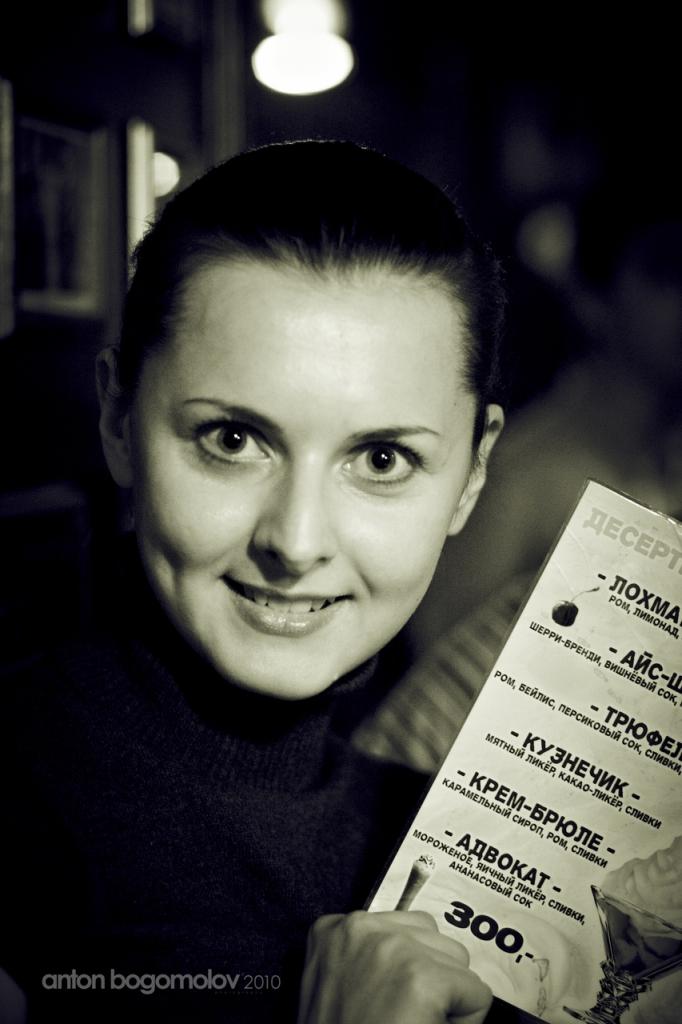 ДЕСЕРТ
- ЛОХМА
РОМ, ЛИМОНАД,
- АЙС-Ш
ШЕРРИ-БРЕНДИ, ВИШНЁВЫЙ СОК,
- ТРЮФЕЛ
РОМ, БЕЙЛИС, ПЕРСИКОВЫЙ СОК, СЛИВКИ,
- КУЗНЕЧИК -
МЯТНЫЙ ЛИКЁР, КАКАО-ЛИКЁР, СЛИВКИ
- КРЕМ-БРЮЛЕ -
КАРАМЕЛЬНЫЙ СИРОП, РОМ, СЛИВКИ
- АДВОКАТ -
МОРОЖЕНОЕ, ЯИЧНЫЙ ЛИКЁР, СЛИВКИ,
АНАНАСОВЫЙ СОК
300,-
anton bogomolov 2010